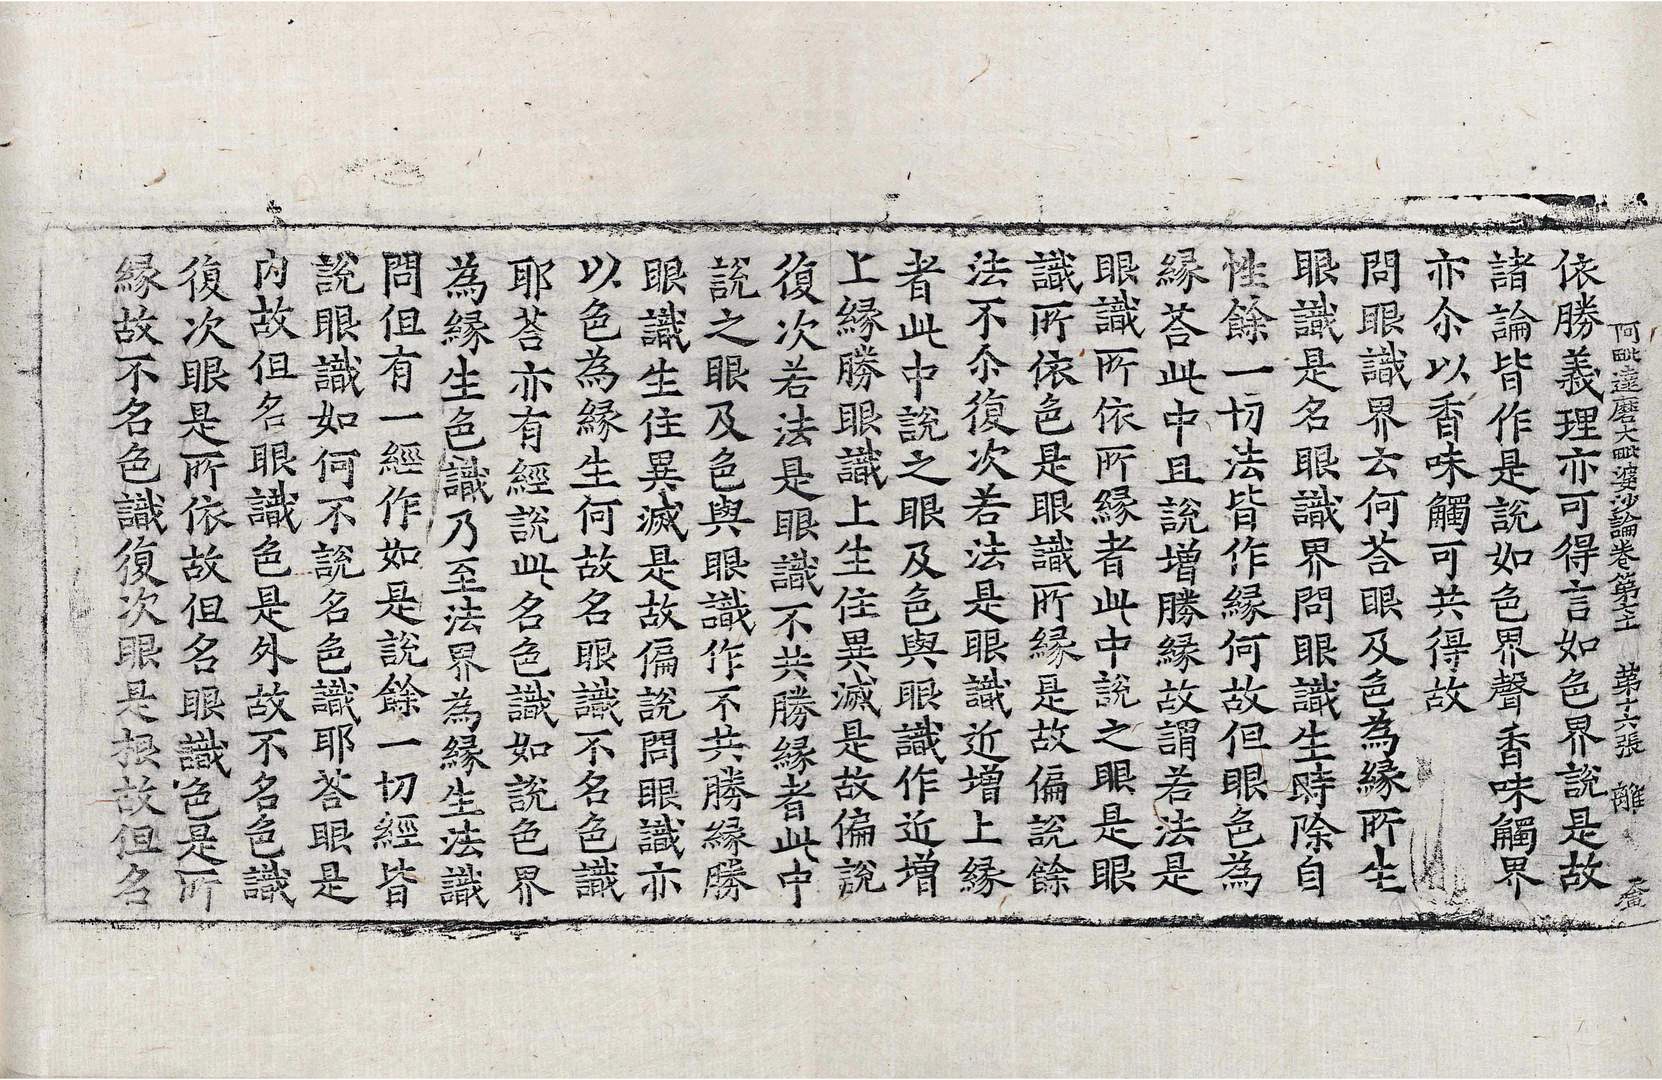 阿毗達磨大毗婆沙論卷第七十三 第十六張 離
依勝義理亦可得言如色界說是故
諸論皆作是說如色界聲香味觸界
亦尒以香味觸可共得故
問眼識界云何荅眼及色為緣所生
眼識是名眼識界問眼識生時除自
性餘一切法皆作緣何故但眼色為
緣荅此中且說增勝緣故謂若法是
眼識所依所緣者此中說之眼是眼
識所依色是眼識所緣是故偏說餘
法不尒復次若法是眼識近增上緣
者此中說之眼及色與眼識作近增
上緣勝眼識上生住異滅是故偏說
復次若法是眼識不共勝緣者此中
說之眼及色與眼識作不共勝緣勝
眼識生住異滅是故偏說問眼識亦
以色為緣生何故名眼識不名色識
耶荅亦有經說此名色識如說色界
為緣生色識乃至法界為緣生法識
問但有一經作如是說餘一切經皆
說眼識如何不說名色識耶荅眼是
內故但名眼識色是外故不名色識
復次眼是所依故但名眼識色是所
緣故不名色識復次眼是根故但名